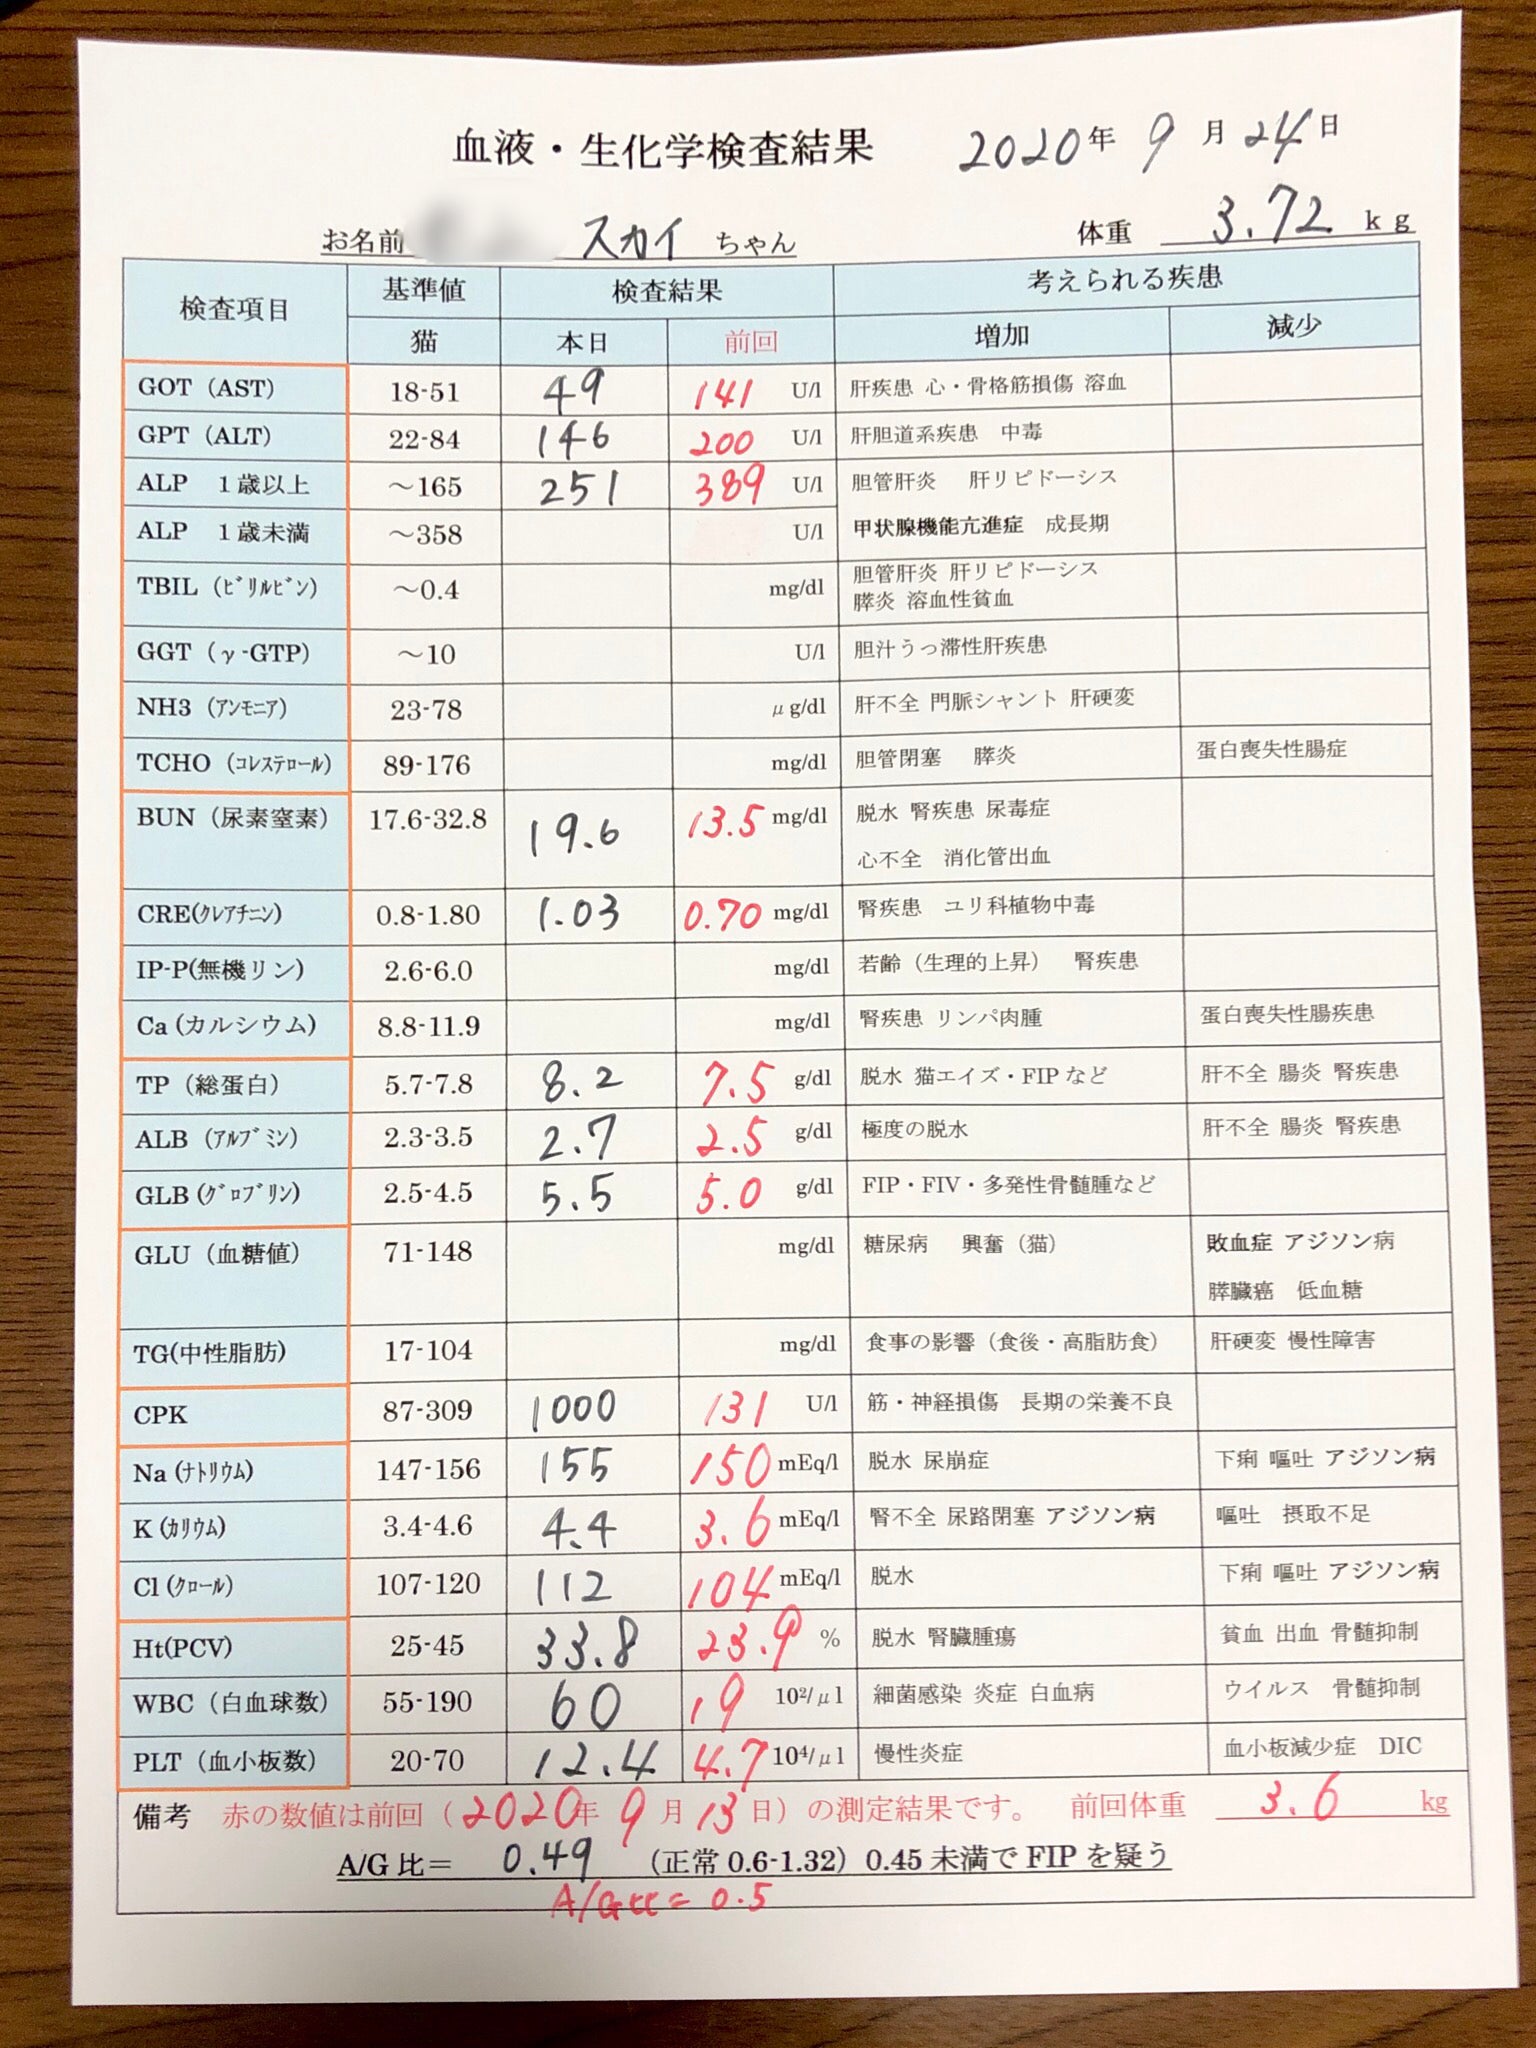 血液・生化学検査結果 2020年 9月 24日
お名前 スカイ ちゃん 体重 3.72 kg
検査項目 基準値 検査結果 考えられる疾患
猫 本日 前回 増加 減少
GOT（AST） 18-51 49 141 U/l 肝疾患 心・骨格筋損傷 溶血
GPT（ALT） 22-84 146 200 U/l 肝胆道系疾患 中毒
ALP １歳以上 ～165 251 389 U/l 胆管肝炎 肝リピドーシス
ALP １歳未満 ～358 U/l 甲状腺機能亢進症 成長期
TBIL（ﾋﾞﾘﾙﾋﾞﾝ） ～0.4 mg/dl 胆管肝炎 肝リピドーシス
膵炎 溶血性貧血
GGT（γ-GTP） ～10 U/l 胆汁うっ滞性肝疾患
NH3（ｱﾝﾓﾆｱ） 23-78 μg/dl 肝不全 門脈シャント 肝硬変
TCHO（ｺﾚｽﾃﾛｰﾙ） 89-176 mg/dl 胆管閉塞 膵炎 蛋白喪失性腸症
BUN（尿素窒素） 17.6-32.8 19.6 13.5 mg/dl 脱水 腎疾患 尿毒症
心不全 消化管出血
CRE(ｸﾚｱﾁﾆﾝ) 0.8-1.80 1.03 0.70 mg/dl 腎疾患 ユリ科植物中毒
IP-P(無機リン) 2.6-6.0 mg/dl 若齢（生理的上昇） 腎疾患
Ca(カルシウム) 8.8-11.9 mg/dl 腎疾患 リンパ肉腫 蛋白喪失性腸疾患
TP（総蛋白） 5.7-7.8 8.2 7.5 g/dl 脱水 猫エイズ・FIPなど 肝不全 腸炎 腎疾患
ALB（ｱﾙﾌﾞﾐﾝ） 2.3-3.5 2.7 2.5 g/dl 極度の脱水 肝不全 腸炎 腎疾患
GLB(ｸﾞﾛﾌﾞﾘﾝ) 2.5-4.5 5.5 5.0 g/dl FIP・FIV・多発性骨髄腫など
GLU（血糖値） 71-148 mg/dl 糖尿病 興奮（猫） 敗血症 アジソン病
膵臓癌 低血糖
TG(中性脂肪) 17-104 mg/dl 食事の影響（食後・高脂肪食） 肝硬変 慢性障害
CPK 87-309 1000 131 U/l 筋・神経損傷 長期の栄養不良
Na(ﾅﾄﾘｳﾑ) 147-156 155 150 mEq/l 脱水 尿崩症 下痢 嘔吐 アジソン病
K(ｶﾘｳﾑ) 3.4-4.6 4.4 3.6 mEq/l 腎不全 尿路閉塞 アジソン病 嘔吐 摂取不足
Cl(ｸﾛｰﾙ) 107-120 112 104 mEq/l 脱水 下痢 嘔吐 アジソン病
Ht(PCV) 25-45 33.8 23.9 % 脱水 腎臓腫瘍 貧血 出血 骨髄抑制
WBC（白血球数） 55-190 60 19 10²/μl 細菌感染 炎症 白血病 ウイルス 骨髄抑制
PLT（血小板数） 20-70 12.4 4.7 10⁴/μl 慢性炎症 血小板減少症 DIC
備考 赤の数値は前回（2020年 9月 13日）の測定結果です。 前回体重 3.6 kg
A/G比＝ 0.49 （正常0.6-1.32）0.45未満でFIPを疑う
A/G比＝0.5